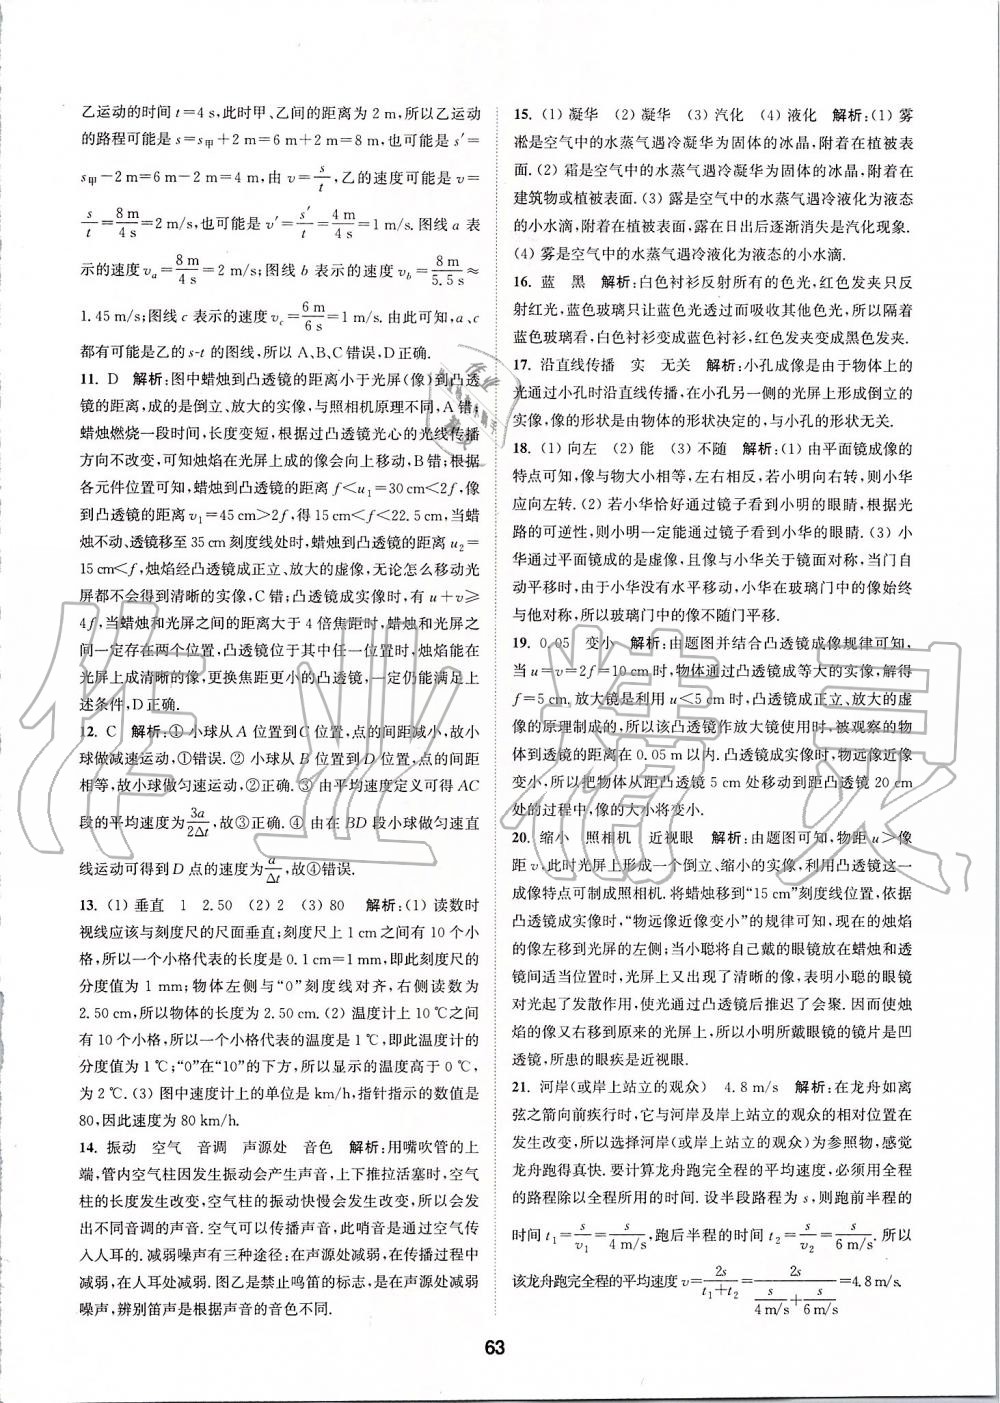 乙运动的时间 t=4 s,此时甲、乙间的距离为 2 m,所以乙运动
的路程可能是 s=s甲+2 m=6 m+2 m=8 m,也可能是 s′=
s甲-2 m=6 m-2 m=4 m,由 v=s/t,乙的速度可能是 v=
s/t=8 m/4 s=2 m/s,也可能是 v′=s′/t=4 m/4 s=1 m/s. 图线 a 表
示的速度 va=8 m/4 s=2 m/s;图线 b 表示的速度 vb=8 m/5.5 s≈
1.45 m/s;图线 c 表示的速度 vc=6 m/6 s=1 m/s. 由此可知,a、c
都有可能是乙的 s-t 的图线,所以 A、B、C 错误,D 正确.
11. D 解析:图中蜡烛到凸透镜的距离小于光屏(像)到凸透
镜的距离,成的是倒立、放大的实像,与照相机原理不同,A 错;
蜡烛燃烧一段时间,长度变短,根据过凸透镜光心的光线传播
方向不改变,可知烛焰在光屏上成的像会向上移动,B 错;根据
各元件位置可知,蜡烛到凸透镜的距离 f<u1=30 cm<2f,像
到凸透镜的距离 v1=45 cm>2f,得 15 cm<f<22.5 cm,当蜡
烛不动、透镜移至 35 cm 刻度线处时,蜡烛到凸透镜的距离 u2=
15 cm<f,烛焰经凸透镜成正立、放大的虚像,无论怎么移动光
屏都不会得到清晰的实像,C 错;凸透镜成实像时,有 u+v≥
4f,当蜡烛和光屏之间的距离大于 4 倍焦距时,蜡烛和光屏之
间一定存在两个位置,凸透镜位于其中任一位置时,烛焰能在
光屏上成清晰的像,更换焦距更小的凸透镜,一定仍能满足上
述条件,D 正确.
12. C 解析:① 小球从 A 位置到 C 位置,点的间距减小,故小
球做减速运动,①错误. ② 小球从 B 位置到 D 位置,点的间距
相等,故小球做匀速运动,②正确. ③ 由平均速度定义可得 AC
段的平均速度为3a/2Δt,故③正确. ④ 由在 BD 段小球做匀速直
线运动可得到 D 点的速度为a/Δt,故④错误.
13. (1) 垂直 1 2.50 (2) 2 (3) 80 解析:(1) 读数时
视线应该与刻度尺的尺面垂直;刻度尺上 1 cm 之间有 10 个小
格,所以一个小格代表的长度是 0.1 cm=1 mm,即此刻度尺的
分度值为 1 mm;物体左侧与“0”刻度线对齐,右侧读数为
2.50 cm,所以物体的长度为 2.50 cm. (2) 温度计上 10 ℃之间
有 10 个小格,所以一个小格代表的温度是 1 ℃,即此温度计的
分度值为 1 ℃;“0”在“10”的下方,所以显示的温度高于 0 ℃,
为 2 ℃. (3) 图中速度计上的单位是 km/h,指针指示的数值是
80,因此速度为 80 km/h.
14. 振动 空气 音调 声源处 音色 解析:用嘴吹管的上
端,管内空气柱因发生振动会产生声音,上下推拉活塞时,空气
柱的长度发生改变,空气柱的振动快慢会发生改变,所以会发
出不同音调的声音. 空气可以传播声音,此哨音是通过空气传
入人耳的. 减弱噪声有三种途径:在声源处减弱,在传播过程中
减弱,在人耳处减弱. 图乙是禁止鸣笛的标志,是在声源处减弱
噪声,辨别笛声是根据声音的音色不同.
15. (1) 凝华 (2) 凝华 (3) 汽化 (4) 液化 解析:(1) 雾
凇是空气中的水蒸气遇冷凝华为固体的冰晶,附着在植被表
面. (2) 霜是空气中的水蒸气遇冷凝华为固体的冰晶,附着在
建筑物或植被表面. (3) 露是空气中的水蒸气遇冷液化为液态
的小水滴,附着在植被表面,露在日出后逐渐消失是汽化现象.
(4) 雾是空气中的水蒸气遇冷液化为液态的小水滴.
16. 蓝 黑 解析:白色衬衫反射所有的色光,红色发夹只反
射红光,蓝色玻璃只让蓝色光透过而吸收其他色光,所以隔着
蓝色玻璃看,白色衬衫变成蓝色衬衫,红色发夹变成黑色发夹.
17. 沿直线传播 实 无关 解析:小孔成像是由于物体上的
光通过小孔时沿直线传播,在小孔另一侧的光屏上形成倒立的
实像,像的形状是由物体的形状决定的,与小孔的形状无关.
18. (1) 向左 (2) 能 (3) 不随 解析:(1) 由平面镜成像的
特点可知,像与物大小相等,左右相反,若小明向右转,则小华
应向左转. (2) 若小华恰好通过镜子看到小明的眼睛,根据光
路的可逆性,则小明一定能通过镜子看到小华的眼睛. (3) 小
华通过平面镜成的是虚像,且像与小华关于镜面对称,当门自
动平移时,由于小华没有水平移动,小华在玻璃门中的像始终
与他对称,所以玻璃门中的像不随门平移.
19. 0.05 变小 解析:由题图并结合凸透镜成像规律可知,
当 u=v=2f=10 cm 时,物体通过凸透镜成等大的实像,解得
f=5 cm. 放大镜是利用 u<5 cm 时,凸透镜成正立、放大的虚
像的原理制成的,所以该凸透镜作放大镜使用时,被观察的物
体到透镜的距离在 0.05 m 以内. 凸透镜成实像时,物远像近像
变小,所以把物体从距凸透镜 5 cm 处移动到距凸透镜 20 cm
处的过程中,像的大小将变小.
20. 缩小 照相机 近视眼 解析:由题图可知,物距 u>像
距 v,此时光屏上形成一个倒立、缩小的实像,利用凸透镜这一
成像特点可制成照相机. 将蜡烛移到“15 cm”刻度线位置,依据
凸透镜成实像时,“物远像近像变小”的规律可知,现在的烛焰
的像左移到光屏的左侧;当小聪将自己戴的眼镜放在蜡烛和透
镜间适当位置时,光屏上又出现了清晰的像,表明小聪的眼镜
对光起了发散作用,使光通过凸透镜后推迟了会聚. 因而使烛
焰的像又右移到原来的光屏上,所以小明所戴眼镜的镜片是凹
透镜,所患的眼疾是近视眼.
21. 河岸(或岸上站立的观众) 4.8 m/s 解析:在龙舟如离
弦之箭向前疾行时,它与河岸及岸上站立的观众的相对位置在
发生改变,所以选择河岸(或岸上站立的观众)为参照物,感觉
龙舟跑得真快. 要计算龙舟跑完全程的平均速度,必须用全程
的路程除以全程所用的时间. 设半段路程为 s,则跑前半程的
时间 t1=s/v1=s/4 m/s,跑后半程的时间 t2=s/v2=s/6 m/s. 所以
该龙舟跑完全程的平均速度 v=2s/(t1+t2)=2s/(s/4 m/s+s/6 m/s)=4.8 m/s.
63
作业精灵